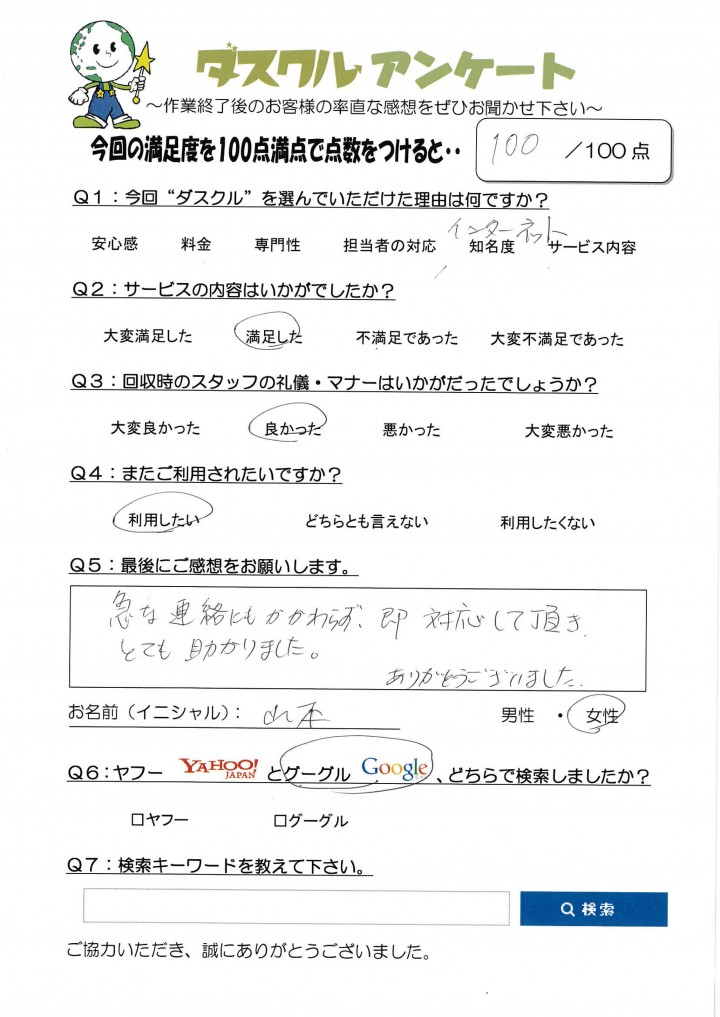 ダスクル アンケート
～作業終了後のお客様の率直な感想をぜひお聞かせ下さい～
今回の満足度を100点満点で点数をつけると・・ 100 /100点
Q1：今回“ダスクル”を選んでいただけた理由は何ですか？
インターネット
安心感 料金 専門性 担当者の対応 知名度 サービス内容
Q2：サービスの内容はいかがでしたか？
大変満足した 満足した 不満足であった 大変不満足であった
Q3：回収時のスタッフの礼儀・マナーはいかがだったでしょうか？
大変良かった 良かった 悪かった 大変悪かった
Q4：またご利用されたいですか？
利用したい どちらとも言えない 利用したくない
Q5：最後にご感想をお願いします。
急な連絡にもかかわらず、即対応して頂き
とても助かりました。
ありがとうございました.
お名前（イニシャル）： 山本 男性 ・ 女性
Q6：ヤフー YAHOO! JAPAN とグーグル Google 、どちらで検索しましたか？
□ヤフー □グーグル
Q7：検索キーワードを教えて下さい。
検索
ご協力いただき、誠にありがとうございました。